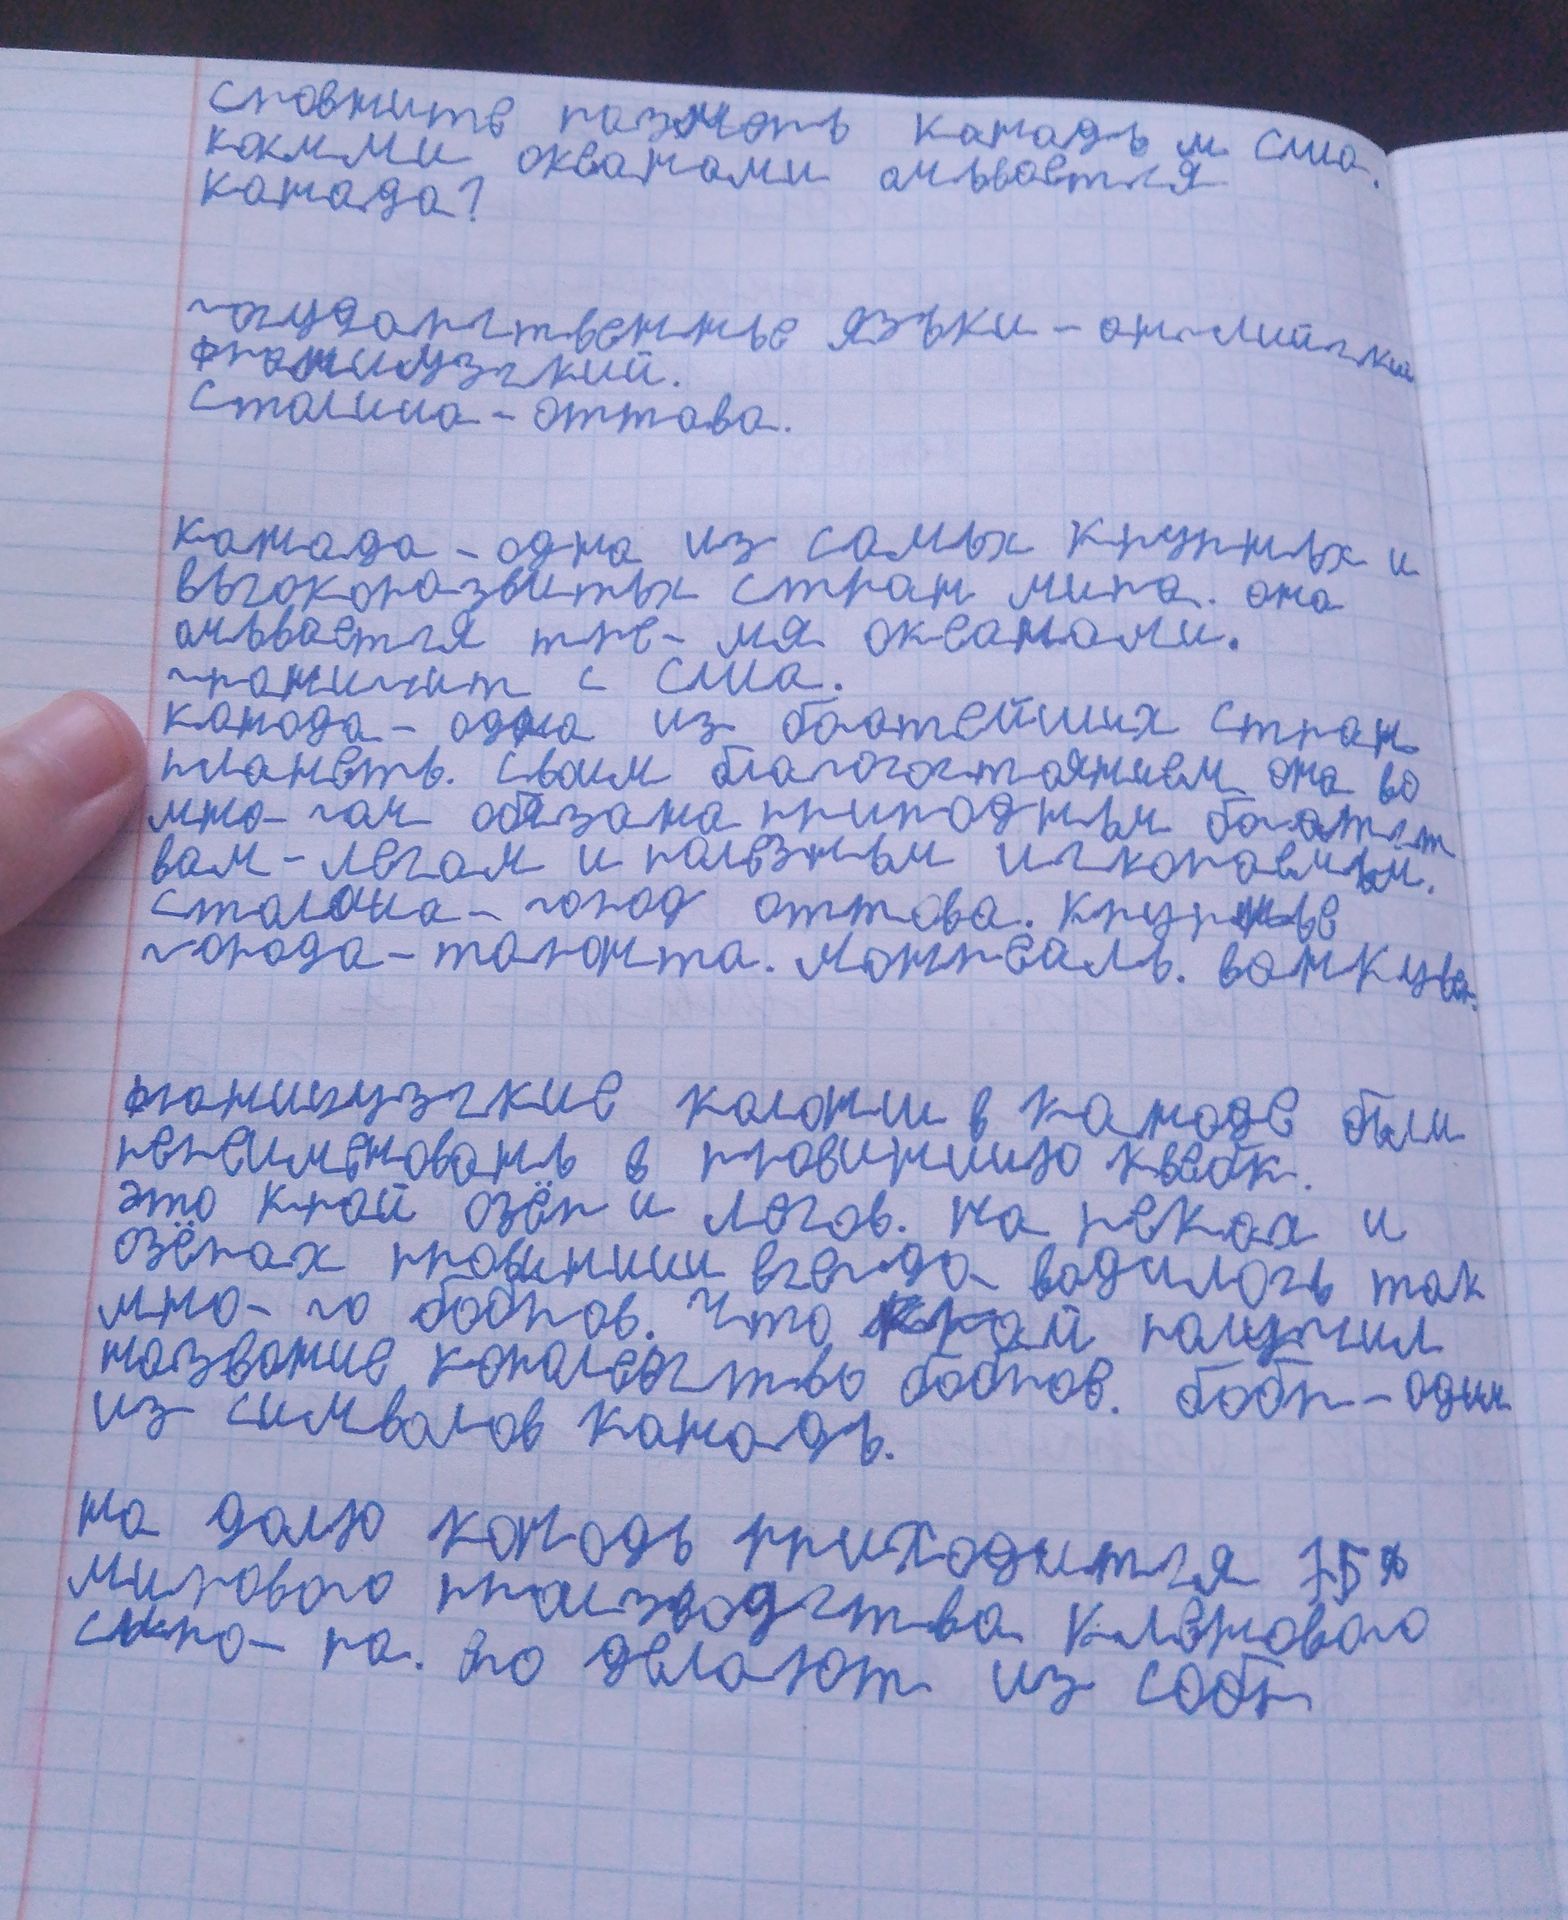 сровните размеръ канадъ и сша.
какими океанами омъвается
канада?
государственнъе язъки - английский
французский.
столица - оттава.
канада - одна из самъх крупнъх и
въсокоразвитъх стран мира. она
омъвается тре- мя океанами.
граничит с сша.
канада - одна из богатейших стран
планетъ. своим благосостоянием она во
мно- гом обязана природнъм богатст
вам - лесам и полезнъм ископаемъм.
столица - город оттава. крупнъе
города - торонта. монреаль. ванкувер.
французские колонии в канаде бъли
переименованъ в провинцию квебк.
это край озёр и лесов. на реках и
озёрах провинции всегда водилось так
мно- го бобров. что край получил
название королевство бобров. бобр - один
из символов канадъ.
на долю канадъ приходится 75%
мирового производства кленового
сиро- па. его делают из собр